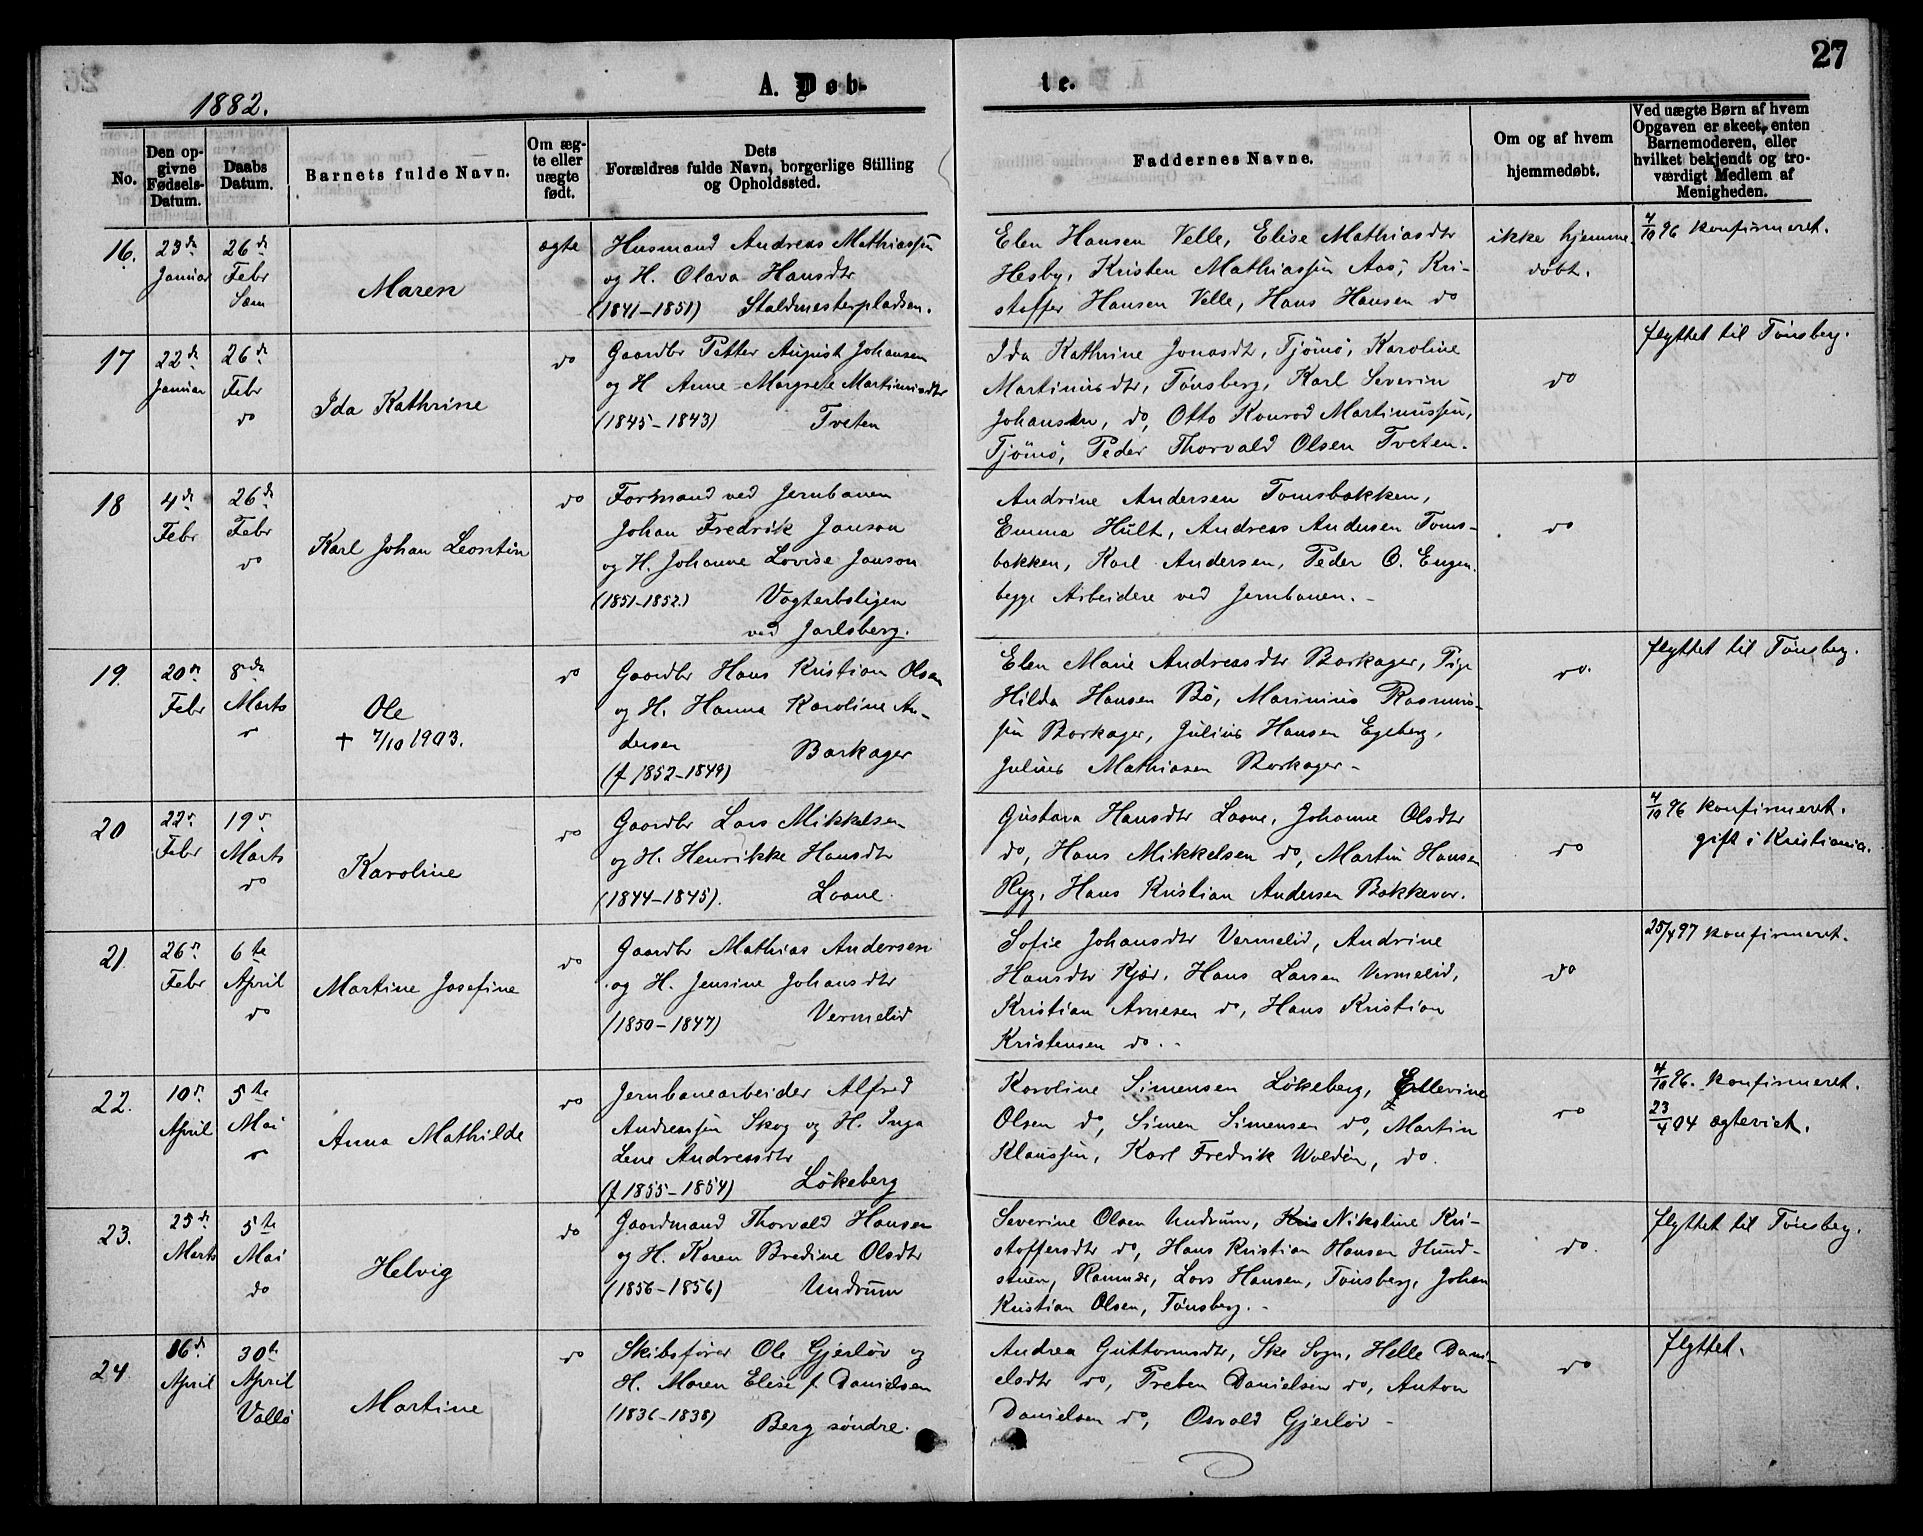 27
A. Døb-
te.
1882.
No.
Den op-
givne
Fødsels-
Datum.
Daabs
Datum.
Barnets fulde Navn.
Om æg-
te eller
uægte
født.
Dets
Forældres fulde Navn, borgerlige Stilling
og Opholdssted.
Faddernes Navne.
Om og af hvem
hjemmedøbt.
Ved uægte Børn af hvem
Opgaven er skeet, enten
Barnemoderen, eller
hvilket bekjendt og tro-
værdigt Medlem af
Menigheden.
16.
23de
Januar
26de
Febr
Sæm
Maren
ægte
Husmand Andreas Mathiassen
og H. Olava Hansdtr
(1841-1851) Staldmesterpladsen.
Elen Hansen Velle, Elise Mathiasdtr
Hesby, Kristen Mathiassen Aas, Kri-
stoffer Hansen Velle, Hans Hansen do
ikke hjemme
døbt.
4/10 96 konfirmeret.
17
22de
Januar
26de
Febr
do
Ida Kathrine
do
Gaardbr Petter August Johansen
og H Anne Margrete Martinusdtr
(1845-1843) Tveten
Ida Kathrine Jonasdt, Tjömö, Karoline
Martinusdtr, Tönsberg, Karl Severin
Johansen, do, Otto Konrad Martinussen,
Tjömö, Peder Thorvald Olsen Tveten.
do
flyttet til Tönsberg.
18
4de
Febr
26de
Febr
do
Karl Johan Leontin
do
Formand ved Jernbanen
Johan Fredrik Janson
og H. Johanne Lovise Janson
(1851-1852) Vogterboligen
ved Jarlsberg.
Andrine Andersen Tomsbakken,
Emma Hult, Andreas Andersen Toms-
bakken, Karl Andersen, Peder O. Engen
begge Arbeidere ved Jernbanen.-
do
19.
20de
Febr
8de
Marts
do
Ole
† 7/10 1903.
do
Gaardbr Hans Kristian Olsen
og H. Hanna Karoline An-
dersen Barkager
(f 1852-1849)
Elen Marie Andreasdtr Barkager, Pige
Hilda Hansen Bö, Marinius Rasmus-
sen Barkager, Julius Hansen Egeberg,
Julius Mathiasen Barkager-
do.
flyttet til Tönsberg.
20
22de
Febr
19de
Marts
do
Karoline
do
Gaardbr Lars Mikkelsen
og H. Henrikke Hansdtr
(1844-1845). Laane.
Gustava Hansdtr Laane, Johanne Olsdtr
do, Hans Mikkelsen do, Martin Hansen
Ryg, Hans Kristian Andersen Bakkevar.
do
4/10 96 konfirmeret.
gift i Kristiania.
21.
26de
Febr
6te
April
do
Martine Josefine
do
Gaardbr Mathias Andersen
og H. Jensine Johansdtr
(1850-1847) Vermelid
Sofie Johansdtr Vermelid, Andrine
Hansdtr Kjær, Hans Larsen Vermelid,
Kristian Arnesen do, Hans Kristian
Kristensen do.-
do
25/4 97 konfirmeret.
22.
10de
April
5te
Mai
do
Anna Mathilde
do
Jernbanearbeider Alfred
Andreassen Skog og H. Inga
Lene Andreasdtr
(f 1855-1854) Lökeberg
Karoline Simensen Lökeberg, Ellevine
Olsen do, Simen Simensen do, Martin
Klaussen, Karl Fredrik Woldén, do.
do
4/10 96. konfirmeret.
23/4 04 ægteviet.
23.
25de
Marts
5te
Mai
do
Helvig
do
Gaardmand Thorvald Hansen
og H. Karen Bredine Olsdtr
(1856-1856) Undrum
Severine Olsen Undrum, Nikoline Kri-
stoffersdtr do, Hans Kristian Hansen Hund-
stuen, Ramnæs, Lars Hansen, Tönsberg, Johan
Kristian Olsen, Tönsberg.-
do.
flyttet til Tönsberg.
24.
16de
April
30te
April
Vallö
Martine
do
Skibsfører Ole Gjerløv og
H. Maren Elise f. Danielsen
(1836-1838) Berg söndre.
Andrea Guttormsdtr, Ske Sogn, Helle Dani-
elsdtr do, Preben Danielsen do, Anton
Danielsen do, Osvald Gjerløv-
do
flyttet.